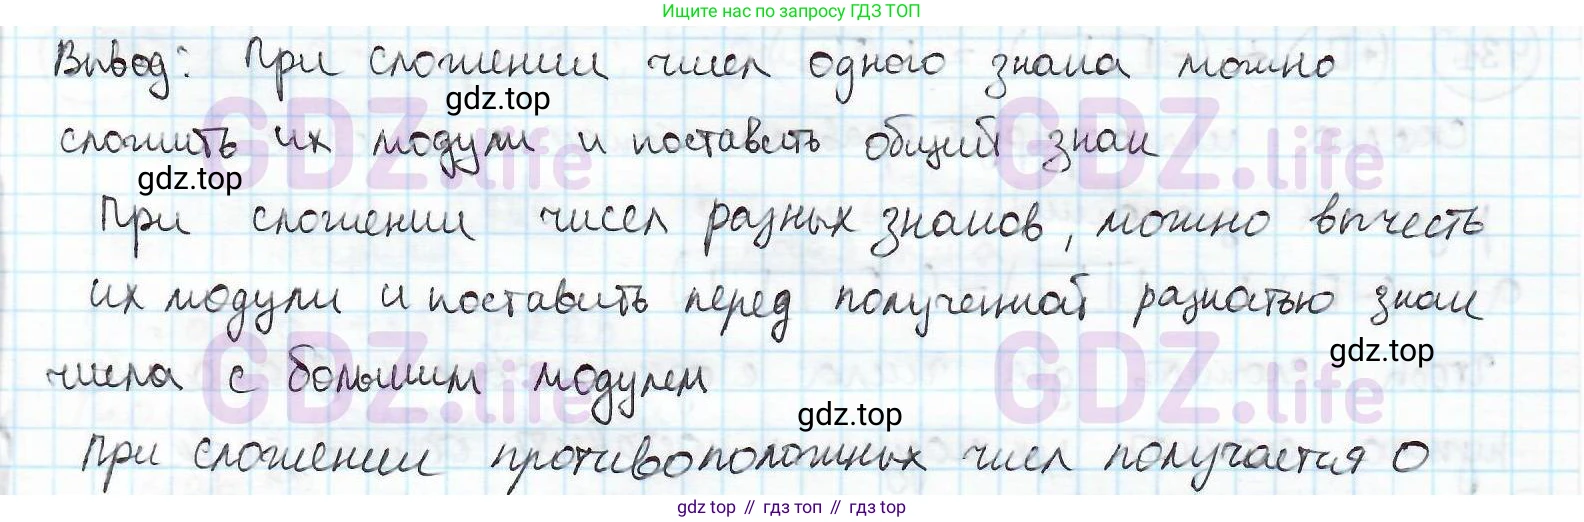 Ищите нас по запросу ГДЗ ТОП
Вывод: При сложении чисел одного знака можно
gdz.top
сложить их модули и поставить общий знак
gdz.top
При сложении чисел разных знаков, можно вычесть
их модули и поставить перед полученной разностью знак
gdz.top
числа с большим модулем
gdz.top
При сложении противоположных чисел получается 0
GDZ.life GDZ.life
GDZ.life GDZ.life
gdz top // гдз топ // gdz top